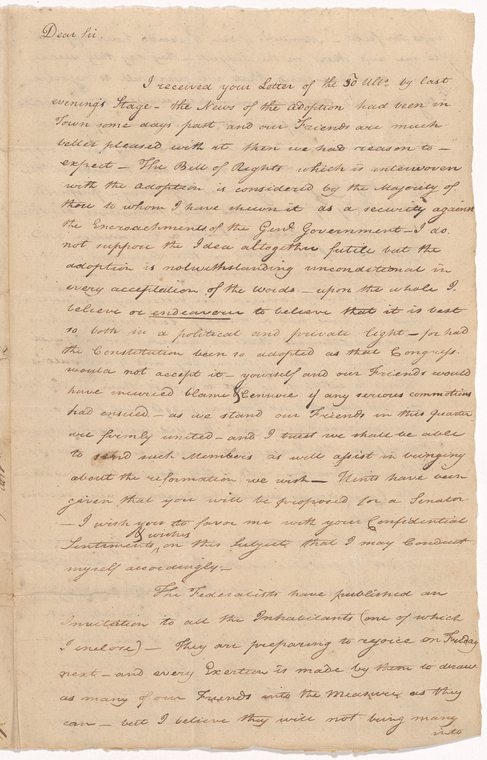 Dear Sir
I received your Letter of the 30 Ulto. by last
evening's Stage – the News of the Adoption had been in
Town some days past, and our Friends are much
better pleased with it than we had reason to –
expect – The Bill of Rights which is interwoven
with the Adoption is considered by the Majority of
those to whom I have shewn it as a security against
the Encroachments of the Genl. Government – I do
not suppose the Idea altogether futile but the
adoption is notwithstanding unconditional in
every acceptation of the Words – upon the whole I
believe or endeavour to believe that it is best
so both in a political and private light – for had
the Constitution been so adopted as that Congress
would not accept it – yourself and our Friends would
have incurred blame & Censure if any serious commotions
had ensued – as we stand our Friends in this quarter
are firmly united – and I trust we shall be able
to send such Members as will assist in bringing
about the reformation we wish – Hints have been
given that you will be proposed for a Senator
– I wish you to favor me with your Confidential
Sentiments & wishes on this Subject that I may Conduct
myself accordingly –
The Federalists have published an
Invitation to all the Inhabitants (one of which
I inclose) – they are preparing to rejoice on Friday
next – and every Exertion is made by them to draw
as many of our Friends into the Measure as they
can – but I believe they will not bring many
into